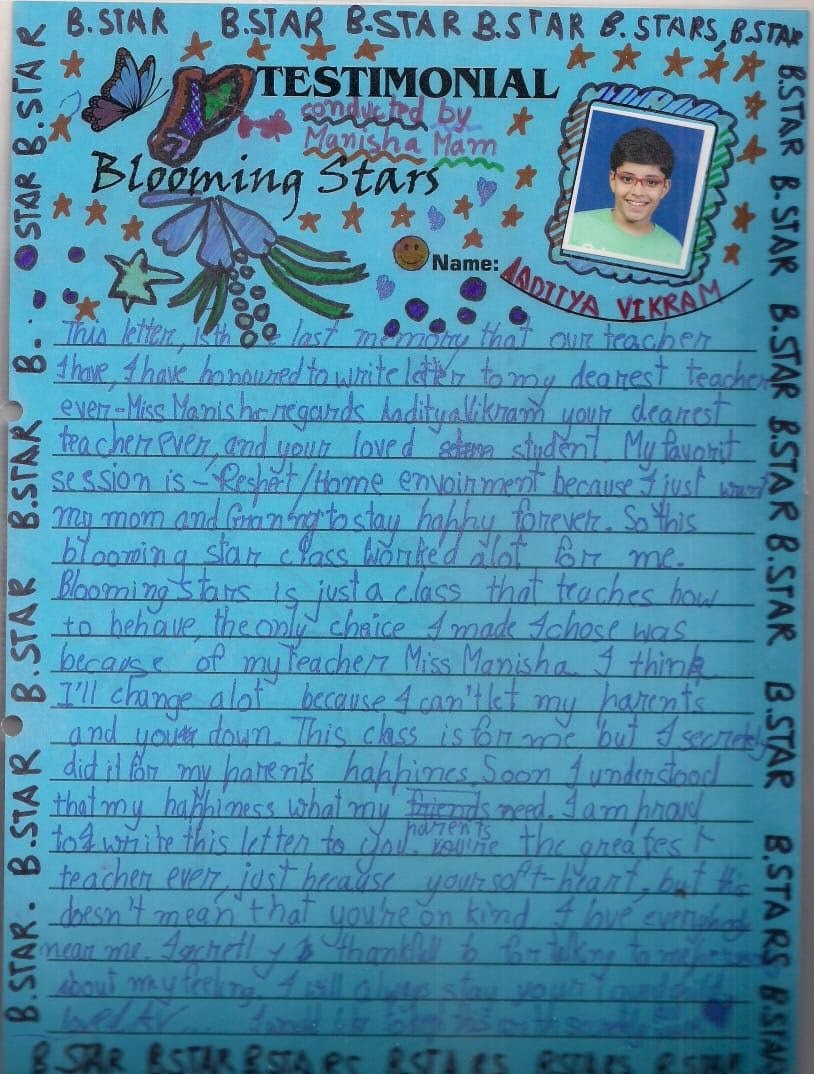 B.STAR B.STAR B.STAR B.STAR B.STARS, B.STAR
TESTIMONIAL
conducted by
Manisha Mam
Blooming Stars
Name: AADITYA VIKRAM
This letter, is th last memory that our teacher
I have, I have honoured to write letter to my dearest teacher
ever-Miss Manisha-regards AadityaVikram your dearest
teacher ever, and your loved student. My favorit
session is - Respect/Home envoirnment because I just want
my mom and to stay happy forever. So this
blooming star class worked alot for me.
Blooming stars is just a class that teaches how
to behave, the only choice I made I chose was
because of my teacher Miss Manisha. I think
I'll change alot because I can't let my parents
and your down. This class is for me but I secretely
did it for my parents happines. Soon I understood
that my happiness what my friends need. I am proud
parents
to write this letter to you. You're the greatest
teacher ever, just because your soft-heart, but this
doesn't mean that you're on kind I love everybody
near me. thankfull for talking to me
about my feeling. I will always stay your
loved A.V... I would like
B.STAR B.STAR B.STARS B.STARS B.STARS B.STAR
STAR B.STAR
B...
B.STAR
B.STAR
B.STAR
B.STAR. B.STAR
B.STAR B.STAR
B.STAR B.STAR B.STAR
B.STAR
B.STARS B.STAR